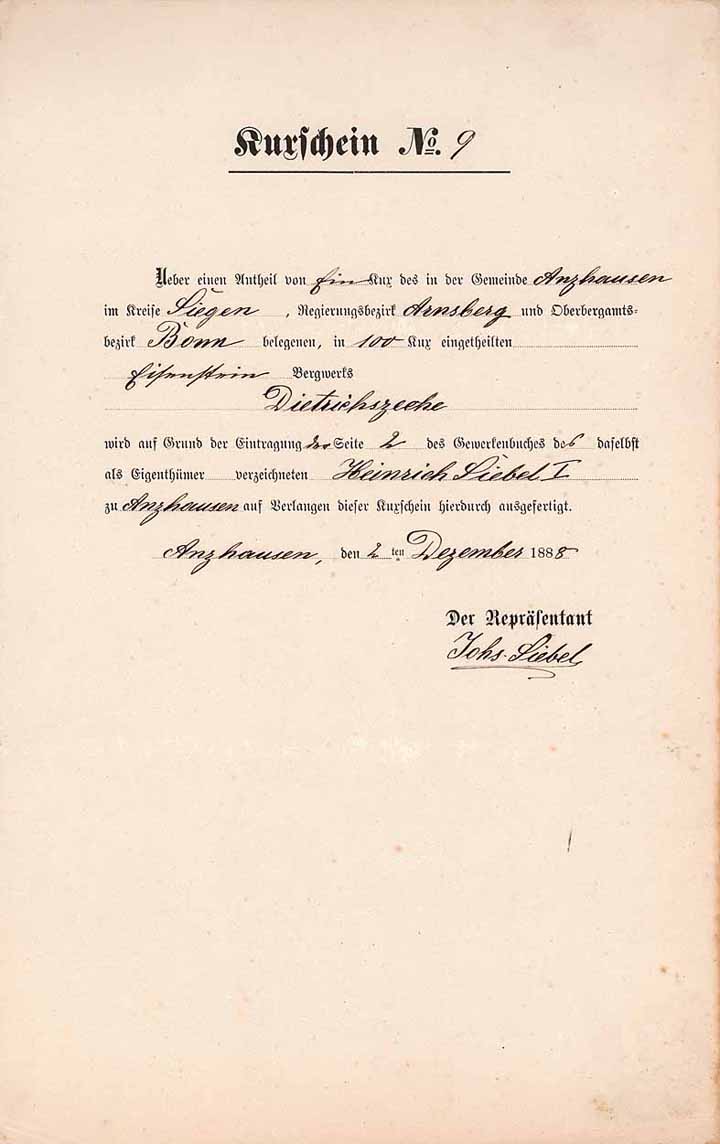 Kuxschein No. 9
Ueber einen Antheil von Ein Kux des in der Gemeinde Anzhausen
im Kreise Siegen , Regierungsbezirk Arnsberg und Oberbergamts-
bezirk Bonn belegenen, in 100 Kux eingetheilten
Eisenstein Bergwerks
Dietrichszeche
wird auf Grund der Eintragung Seite 2 des Gewerkenbuches des daselbst
als Eigenthümer verzeichneten Heinrich Siebel I
zu Anzhausen auf Verlangen dieser Kuxschein hierdurch ausgefertigt.
Anzhausen, den 2 ten Dezember 1888
Der Repräsentant
Johs. Siebel